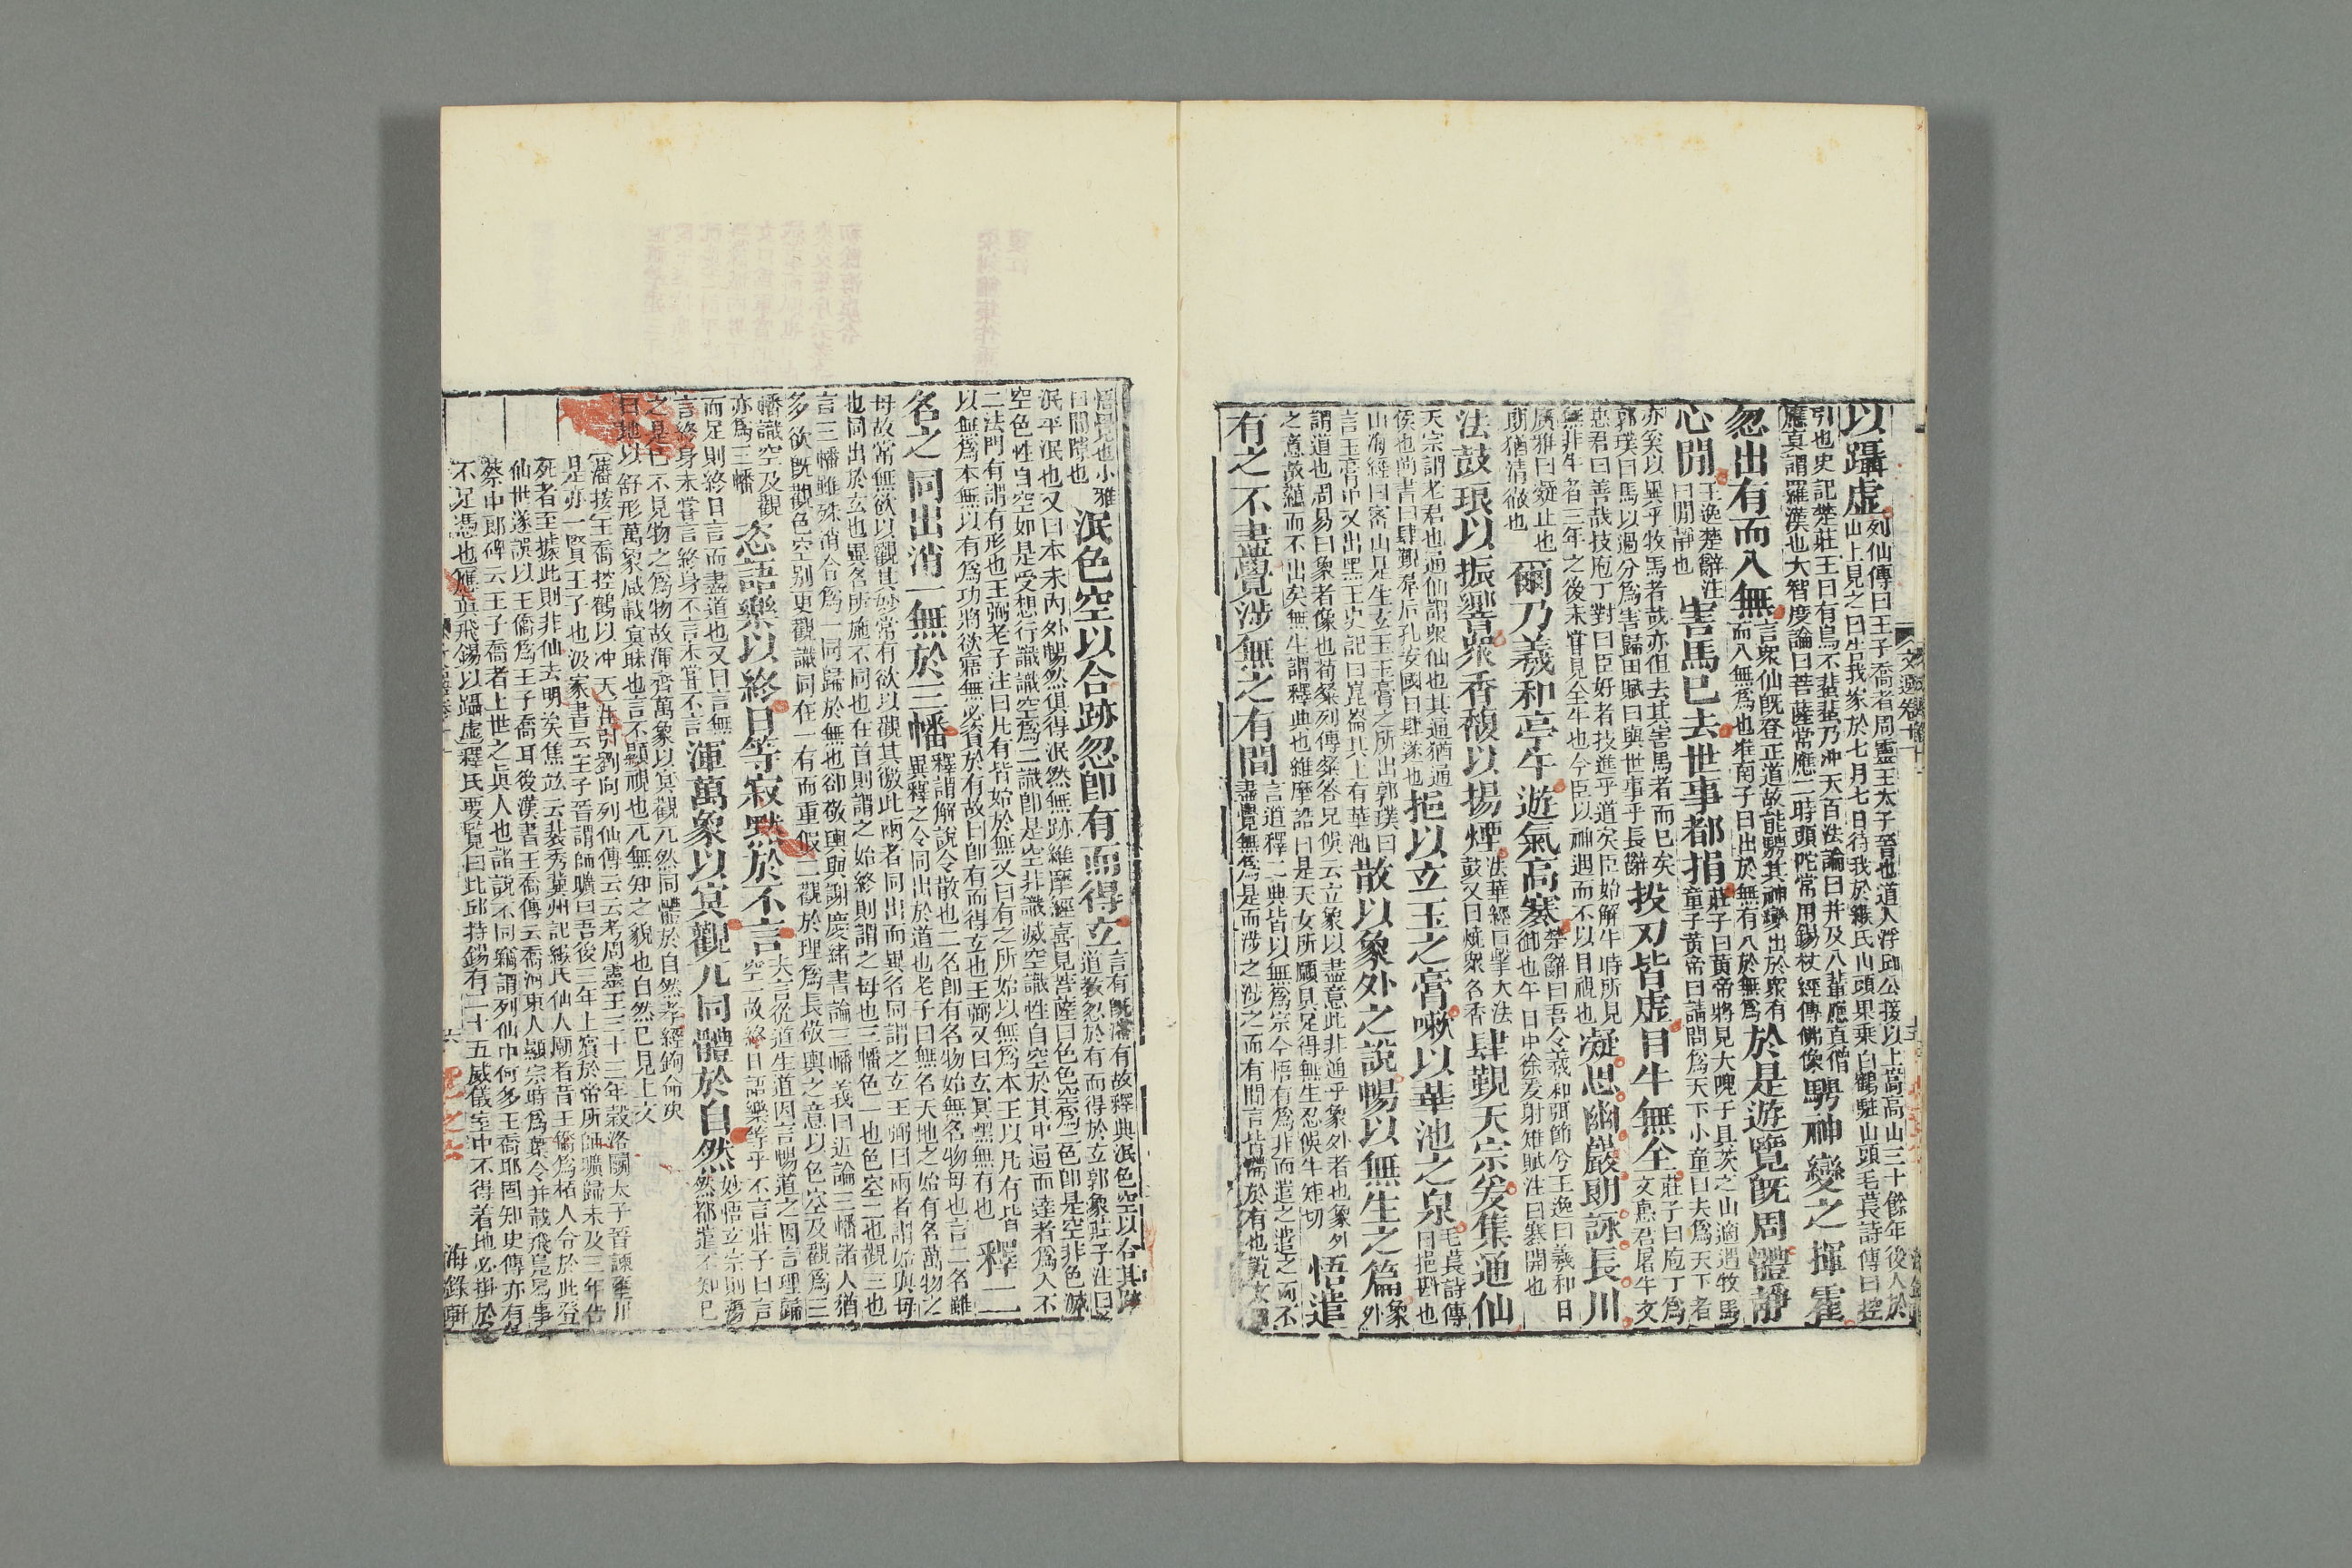 以躡虛
列仙傳曰王子喬者周靈王太子晉也道人浮邱公接以上嵩高山三十餘年後人於
山上見之曰告我家於七月七日待我於緱氏山頭果乘白鶴駐山頭毛萇詩傳曰控
引也史記楚莊王曰有鳥不蜚蜚乃沖天百法論曰并及八輩應真僧
應真謂羅漢也大智度論曰菩薩常應二時頭陀常用錫杖經傳佛像
騁神變之揮霍
忽出有而入無
言眾仙既登正道故能騁其神變出於眾有
而入無為也淮南子曰出於無有入於無為
於是遊覽既周體靜
心閒
王逸楚辭注
曰閒靜也
害馬已去世事都捐
莊子曰黃帝將見大隗于具茨之山適遇牧馬
童子黃帝曰請問為天下小童曰夫為天下者
亦奚以異乎牧馬者哉亦但去其害馬者而已矣
郭璞曰馬以過分為害歸田賦曰與世事乎長辭
投刃皆虛目牛無全
莊子曰庖丁為
文惠君屠牛文
惠君曰善哉技庖丁對曰臣好者技進乎道矣臣始解牛時所見
無非牛者三年之後未嘗見全牛也今臣以神遇而不以目視也
凝思幽巖朗詠長川
廣雅曰凝止也
朗猶清徹也
爾乃羲和亭午遊氣高褰
楚辭曰吾令羲和弭節兮王逸曰羲和日
御也午日中徐爰射雉賦注曰褰開也
法鼓琅以振響眾香馥以揚煙
法華經曰擊大法
鼓又曰燒眾名香
肆覲天宗爰集通仙
天宗謂老君也通仙謂眾仙也其通猶通
侯也尚書曰肆覲羣后孔安國曰肆遂也
挹以玄玉之膏嗽以華池之泉
毛萇詩傳
曰挹㪺也
山海經曰密山是生玄玉玉膏之所出郭璞曰
言玉膏中又出黑玉史記曰崑崙其上有華池
散以象外之說暢以無生之篇
象
外
謂道也周易曰象者像也荀粲列傳粲答兄俁云立象以盡意此非通乎象外者也象外
之意故蘊而不出矣無生謂釋典也維摩誥曰是天女所願具足得無生忍俁牛矩切
悟遣
有之不盡覺涉無之有間
言道釋二典皆以無為宗今悟有為非而遣之遣之而不
盡覺無為是而涉之涉之而有間言皆滯於有也說文曰
悟覺也小雅
曰間隙也
泯色空以合跡忽即有而得玄
言有既滯有故釋典泯色空以合其跡
道教忽於有而得於玄郭象莊子注曰
泯平泯也又曰本末內外暢然俱得泯然無跡維摩經喜見菩薩曰色色空為二色即是空非色滅
空色性自空如是受想行識識空為二識即是空非識滅空識性自空於其中通而達者為入不
二法門有謂有形也王弼老子注曰凡有皆始於無又曰有之所始以無為本王以凡有皆
以無為本無以有為功將欲寤無必資於有故曰即有而得玄也王弼又曰玄冥默無有也
釋二
名之同出消一無於三幡
釋謂解說令散也二名即有名物始無名物母也言二名雖
異釋之令同出於道也老子曰無名天地之始有名萬物之
母故常無欲以觀其妙常有欲以觀其徼此兩者同出而異名同謂之玄王弼曰兩者謂始與母
也同出於玄也異名所施不同也在首則謂之始終則謂之母也三幡色一也色空二也觀三也
言三幡雖殊消令為一同歸於無也卻敬輿與謝慶緒書論三幡義曰近論三幡諸人猶
多欲既觀色空別更觀識同在一有而重假二觀於理為長敬輿之意以色空及觀為三
幡識空及觀
亦為三幡
恣語樂以終日等寂默於不言
夫言從道生道因言暢道之因言理歸
空一故終日語樂等乎不言莊子曰言
而足則終日言而盡道也又曰言無
言終身未嘗言終身不言未嘗不言
渾萬象以冥觀兀同體於自然
妙悟玄宗則蕩
然都遣不知已
之是已不見物之為物故渾齊萬象以冥觀兀然同體於自然孝經鉤命決
曰地以舒形萬象咸載冥昧也言不顯視也兀無知之貌也自然已見上文
[藩按王喬控鶴以沖天注引劉向列仙傳云云考周靈王三十三年穀洛鬬太子晉諫壅川
是亦一賢王子也汲冢書云王子晉謂師曠曰吾後三年上賓於帝所師曠歸未及三年告
死者至據此則非仙去明矣焦竑云裴秀冀州記緱氏仙人廟者昔王僑為栢人令於此登
仙世遂誤以王僑為王子喬耳後漢書王喬傳云喬河東人顯宗時為葉令并載飛鳧舄事
蔡中郎碑云王子喬者上世之真人也諸說不同竊謂列仙中何多王喬耶固知史傳亦有
不足憑也應真飛錫以躡虛]釋氏要覽曰比邱持錫有二十五威儀室中不得著地必掛於
六
海錄軒